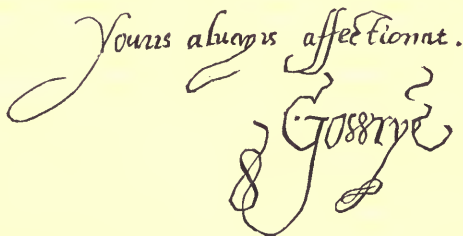 Youris alwayis affectionat.
Gowrye